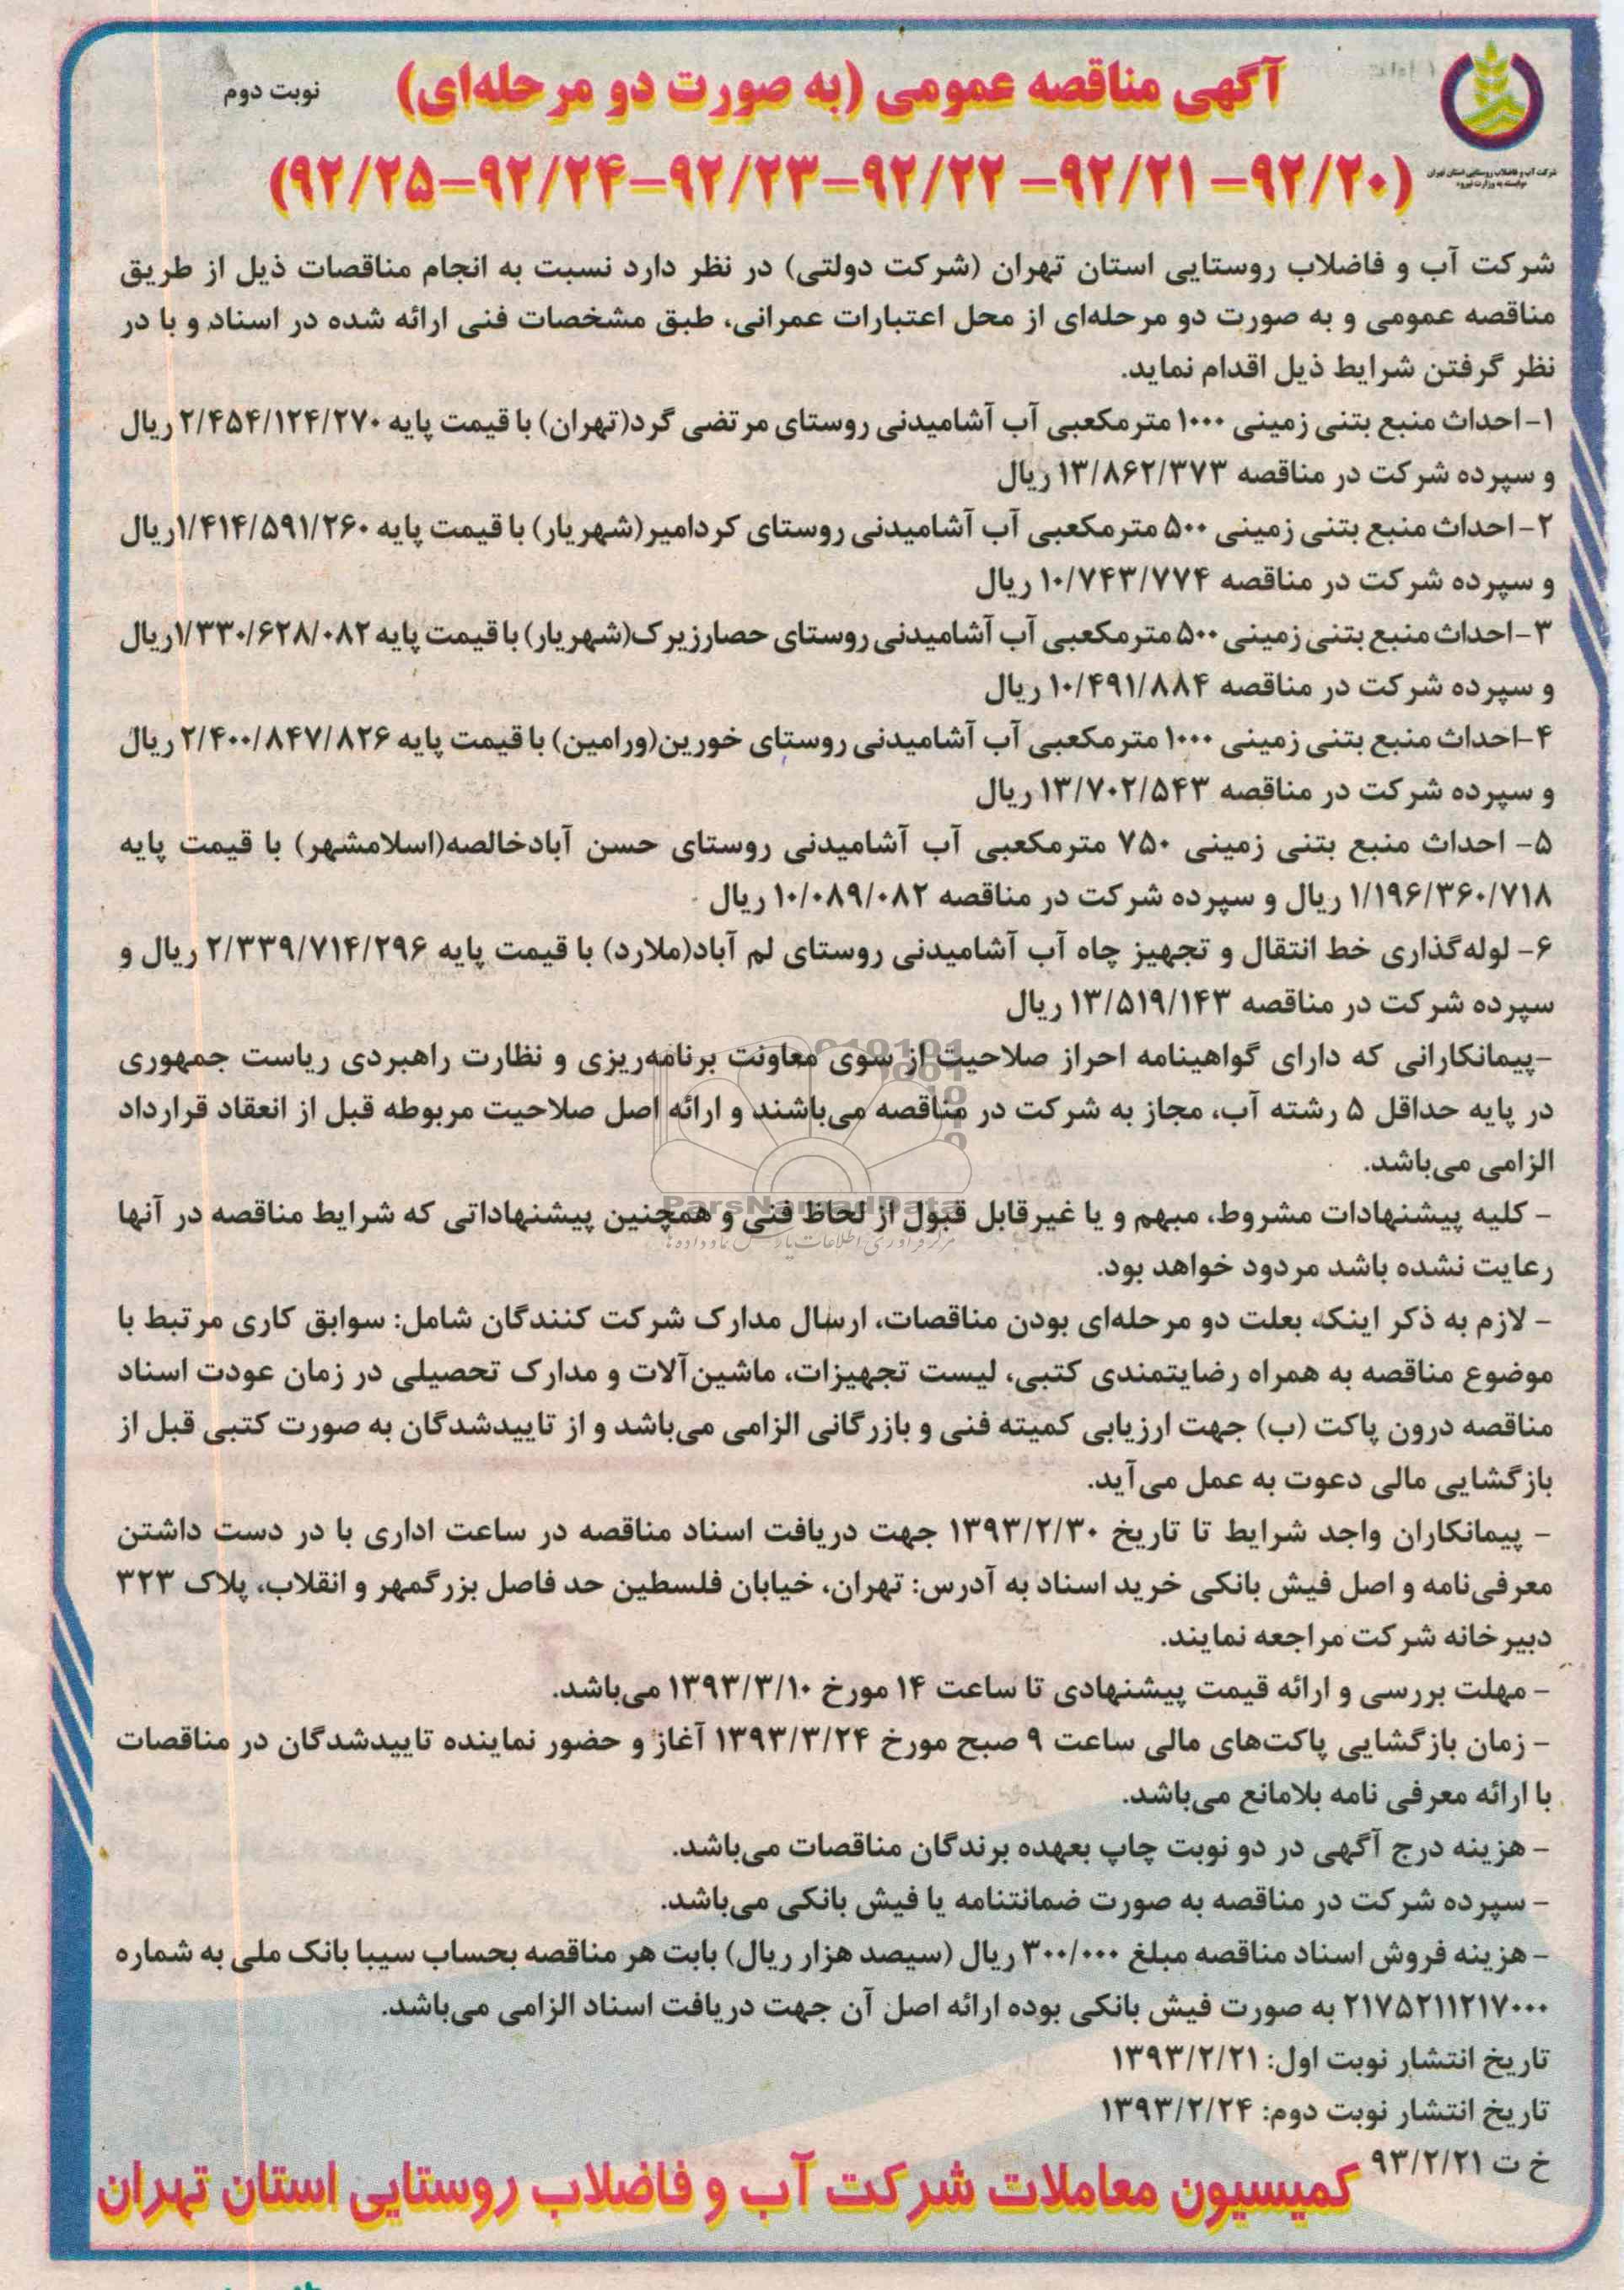 آگهی مناقصه عمومی (به صورت دو مرحله‌ای)
نوبت دوم
(۹۲/۲۰- ۹۲/۲۱- ۹۲/۲۲-۹۲/۲۳-۹۲/۲۴-۹۲/۲۵)
شرکت آب و فاضلاب روستایی استان تهران
«وابسته به وزارت نیرو»
شرکت آب و فاضلاب روستایی استان تهران (شرکت دولتی) در نظر دارد نسبت به انجام مناقصات ذیل از طریق
مناقصه عمومی و به صورت دو مرحله‌ای از محل اعتبارات عمرانی، طبق مشخصات فنی ارائه شده در اسناد و با در
نظر گرفتن شرایط ذیل اقدام نماید.
۱- احداث منبع بتنی زمینی ۱۰۰۰ مترمکعبی آب آشامیدنی روستای مرتضی گرد(تهران) با قیمت پایه ۲/۴۵۴/۱۲۴/۲۷۰ ریال
و سپرده شرکت در مناقصه ۱۳/۸۶۲/۳۷۳ ریال
۲- احداث منبع بتنی زمینی ۵۰۰ مترمکعبی آب آشامیدنی روستای کردامیر(شهریار) با قیمت پایه ۱/۴۱۴/۵۹۱/۲۶۰ریال
و سپرده شرکت در مناقصه ۱۰/۷۴۳/۷۷۴ ریال
۳-احداث منبع بتنی زمینی ۵۰۰مترمکعبی آب آشامیدنی روستای حصارزیرک(شهریار) با قیمت پایه ۱/۳۳۰/۶۲۸/۰۸۲ریال
و سپرده شرکت در مناقصه ۱۰/۴۹۱/۸۸۴ ریال
۴-احداث منبع بتنی زمینی ۱۰۰۰ مترمکعبی آب آشامیدنی روستای خورین(ورامین) با قیمت پایه ۲/۴۰۰/۸۴۷/۸۲۶ ریال
و سپرده شرکت در مناقصه ۱۳/۷۰۲/۵۴۳ ریال
۵- احداث منبع بتنی زمینی ۷۵۰ مترمکعبی آب آشامیدنی روستای حسن آبادخالصه(اسلامشهر) با قیمت پایه
۱/۱۹۶/۳۶۰/۷۱۸ ریال و سپرده شرکت در مناقصه ۱۰/۰۸۹/۰۸۲ ریال
۶- لوله‌گذاری خط انتقال و تجهیز چاه آب آشامیدنی روستای لم آباد(ملارد) با قیمت پایه ۲/۳۳۹/۷۱۴/۲۹۶ ریال و
سپرده شرکت در مناقصه ۱۳/۵۱۹/۱۴۳ ریال
-پیمانکارانی که دارای گواهینامه احراز صلاحیت از سوی معاونت برنامه‌ریزی و نظارت راهبردی ریاست جمهوری
در پایه حداقل ۵ رشته آب، مجاز به شرکت در مناقصه می‌باشند و ارائه اصل صلاحیت مربوطه قبل از انعقاد قرارداد
الزامی می‌باشد.
ParsNamadData
- کلیه پیشنهادات مشروط، مبهم و یا غیرقابل قبول از لحاظ فنی و همچنین پیشنهاداتی که شرایط مناقصه در آنها
رعایت نشده باشد مردود خواهد بود.
- لازم به ذکر اینکه بعلت دو مرحله‌ای بودن مناقصات، ارسال مدارک شرکت کنندگان شامل: سوابق کاری مرتبط با
موضوع مناقصه به همراه رضایتمندی کتبی، لیست تجهیزات، ماشین‌آلات و مدارک تحصیلی در زمان عودت اسناد
مناقصه درون پاکت (ب) جهت ارزیابی کمیته فنی و بازرگانی الزامی می‌باشد و از تاییدشدگان به صورت کتبی قبل از
بازگشایی مالی دعوت به عمل می‌آید.
- پیمانکاران واجد شرایط تا تاریخ ۱۳۹۳/۲/۳۰ جهت دریافت اسناد مناقصه در ساعت اداری با در دست داشتن
معرفی‌نامه و اصل فیش بانکی خرید اسناد به آدرس: تهران، خیابان فلسطین حد فاصل بزرگمهر و انقلاب، پلاک ۳۲۳
دبیرخانه شرکت مراجعه نمایند.
- مهلت بررسی و ارائه قیمت پیشنهادی تا ساعت ۱۴ مورخ ۱۳۹۳/۳/۱۰ می‌باشد.
- زمان بازگشایی پاکت‌های مالی ساعت ۹ صبح مورخ ۱۳۹۳/۳/۲۴ آغاز و حضور نماینده تاییدشدگان در مناقصات
با ارائه معرفی نامه بلامانع می‌باشد.
- هزینه درج آگهی در دو نوبت چاپ بعهده برندگان مناقصات می‌باشد.
- سپرده شرکت در مناقصه به صورت ضمانتنامه یا فیش بانکی می‌باشد.
- هزینه فروش اسناد مناقصه مبلغ ۳۰۰/۰۰۰ ریال (سیصد هزار ریال) بابت هر مناقصه بحساب سیبا بانک ملی به شماره
۲۱۷۵۲۱۱۲۱۷۰۰۰ به صورت فیش بانکی بوده ارائه اصل آن جهت دریافت اسناد الزامی می‌باشد.
تاریخ انتشار نوبت اول: ۱۳۹۳/۲/۲۱
تاریخ انتشار نوبت دوم: ۱۳۹۳/۲/۲۴
خ ت ۹۳/۲/۲۱
کمیسیون معاملات شرکت آب و فاضلاب روستایی استان تهران